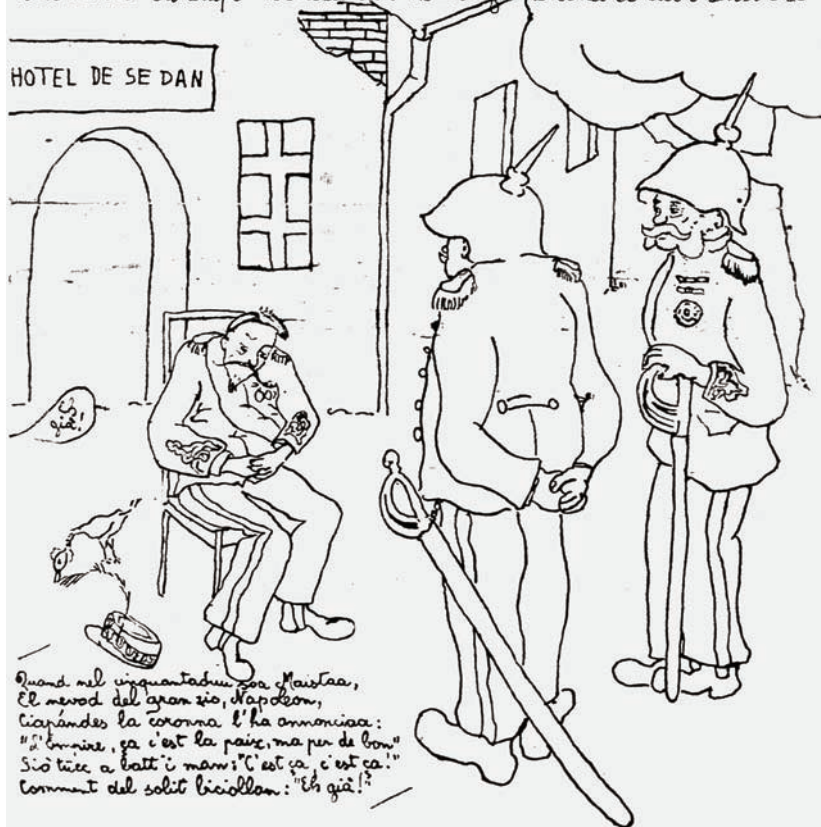 HOTEL DE SEDAN
Eh
già!
Quand nel cinquantaduu soa Maistaa,
El nevod del gran zio, Napoleon,
Ciapándes la coronna l'ha annonciaa:
"L'Empire, ça c'est la paix, ma per de bon"
Giò tücc a batt i man: "C'est ça, c'est ça!"
Comment del solit biciollan: "Eh già!"